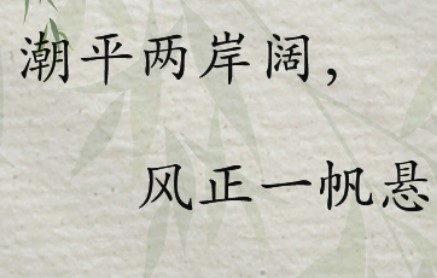 潮平两岸阔，
风正一帆悬